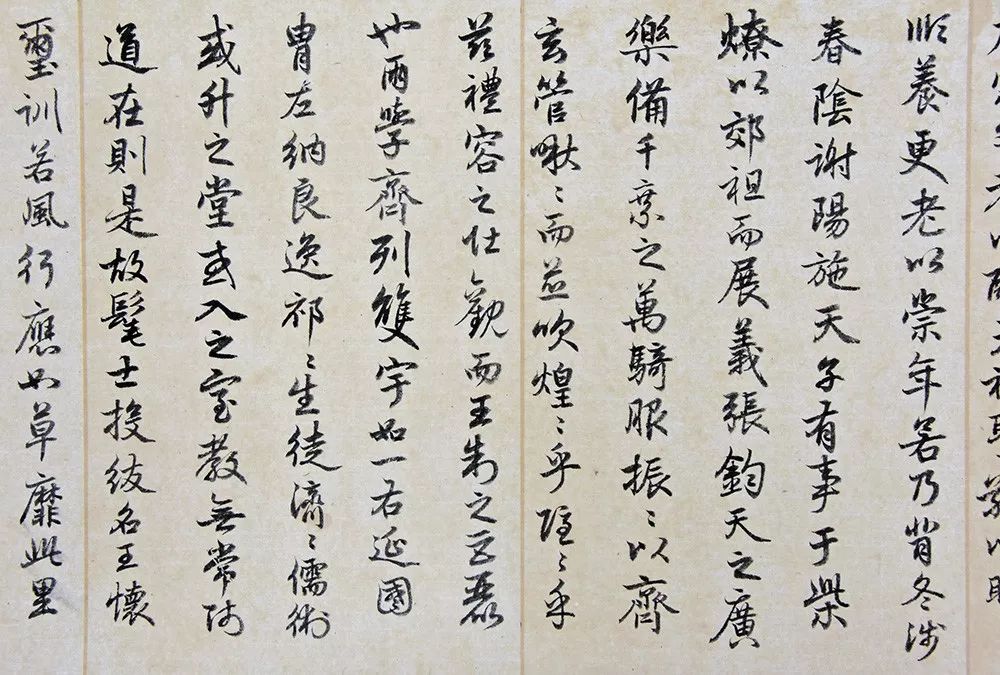 順養更老以崇年若乃背冬涉
春陰謝陽施天子有事于柴
燎以郊祖而展義張鈞天之廣
樂備千乘之萬騎服振〻以齊
玄管啾〻而並吹煌〻乎隱〻乎
茲禮容之壯觀而王制之巨麗
也兩學齊列雙宇如一右延國
胄左納良逸祁〻生徒濟〻儒術
或升之堂或入之室教無常師
道在則是故髦士投紱名王懷
璽訓若風行應如草靡此里